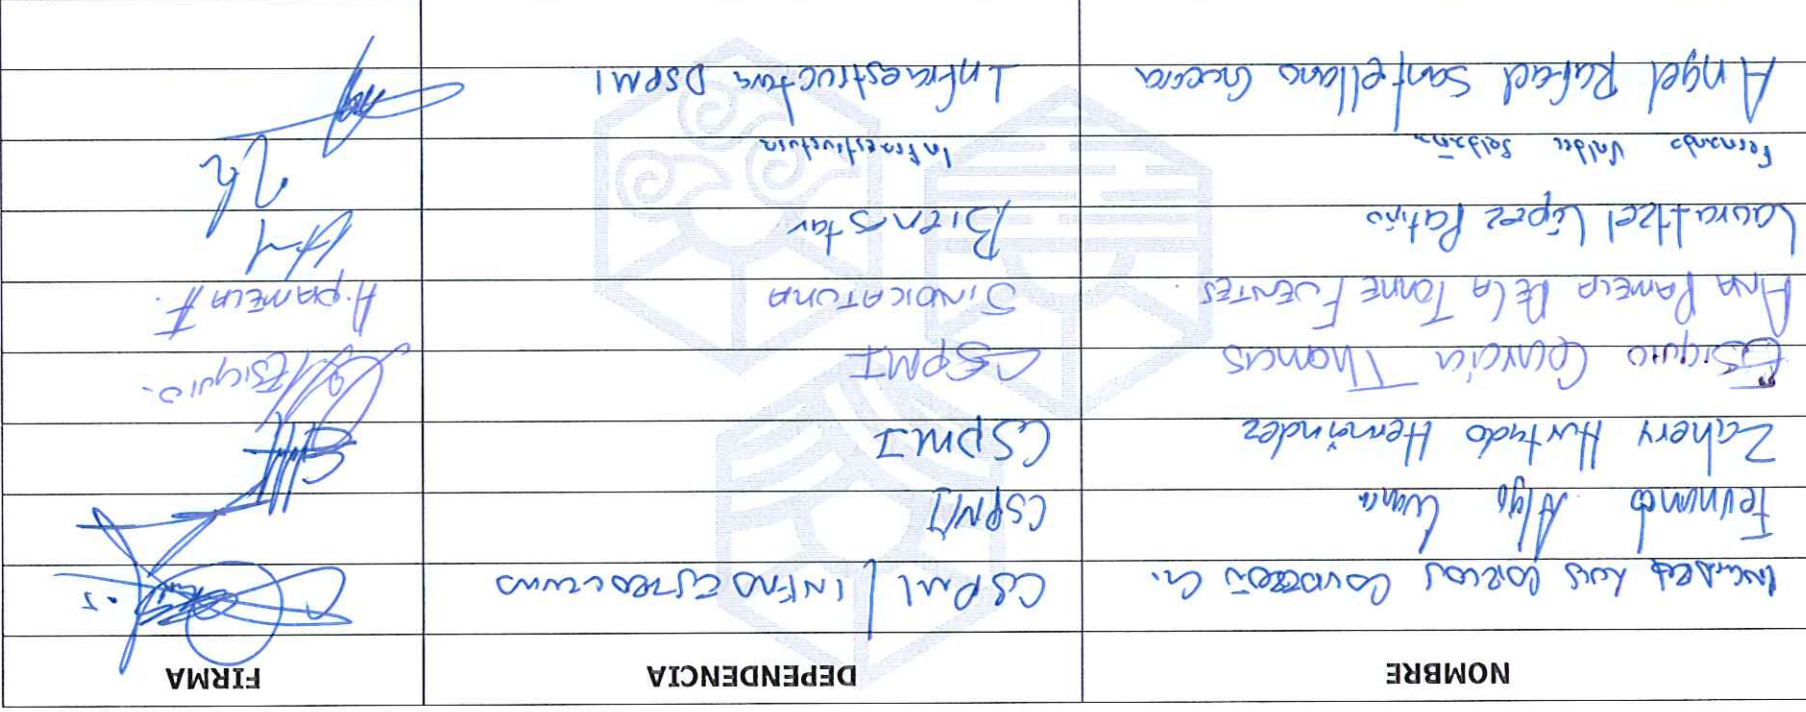 NOMBRE DEPENDENCIA FIRMA
Luis Carlos CSPMI / INFRAESTRUCTURA
Fernando Luna CSPMI
Zahery Hurtado Hernández CSPMI
Esiquio García Thomas CSPMI Esiquio.
ANA PAMELA DE LA TORRE FUENTES SINDICATURA A. PAMELA F.
Laura Itzel López Patiño Bienestar
Fernando Valdez Saldaña Infraestructura
Angel Rafael Santellano Infraestructura DSPMI